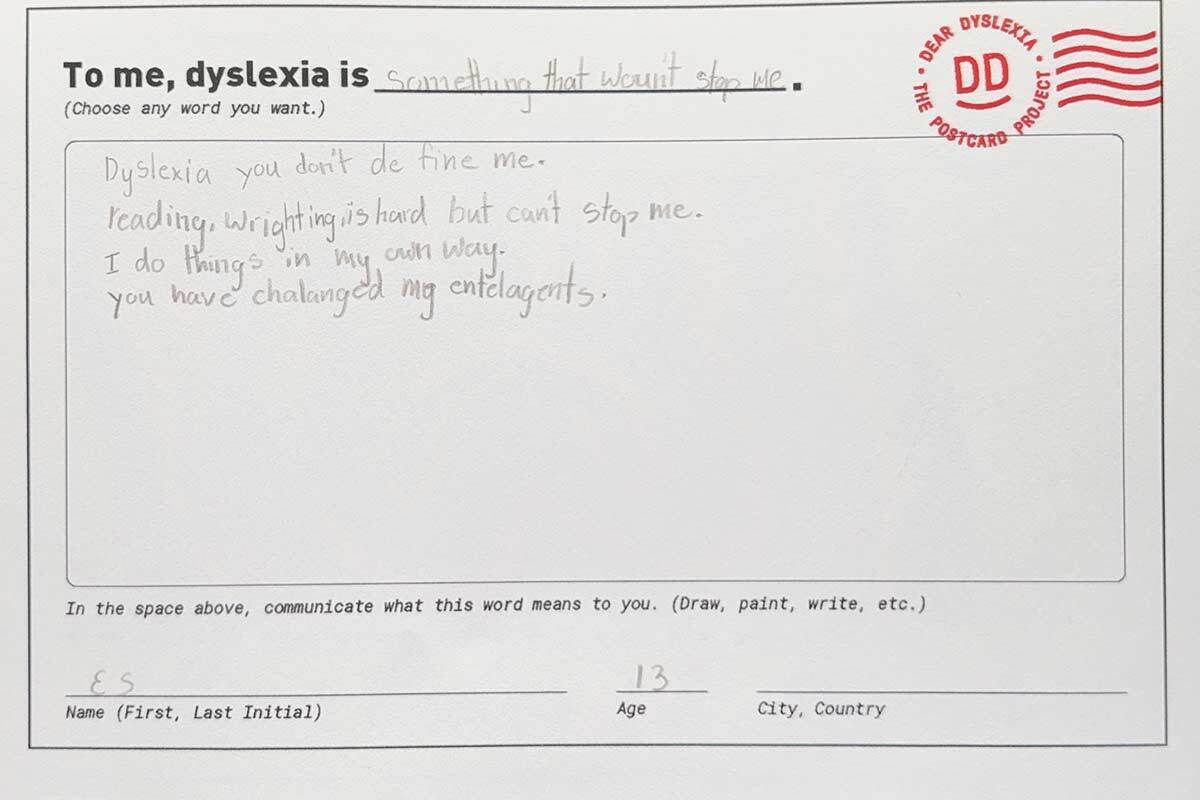 To me, dyslexia is something that woun't stop me.
(Choose any word you want.)
• DEAR DYSLEXIA • THE POSTCARD PROJECT
DD
Dyslexia you don't de fine me.
reading, wrighting, is hard but can't stop me.
I do things in my own way.
you have chalanged my entelagents.
In the space above, communicate what this word means to you. (Draw, paint, write, etc.)
ES 13
Name (First, Last Initial) Age City, Country